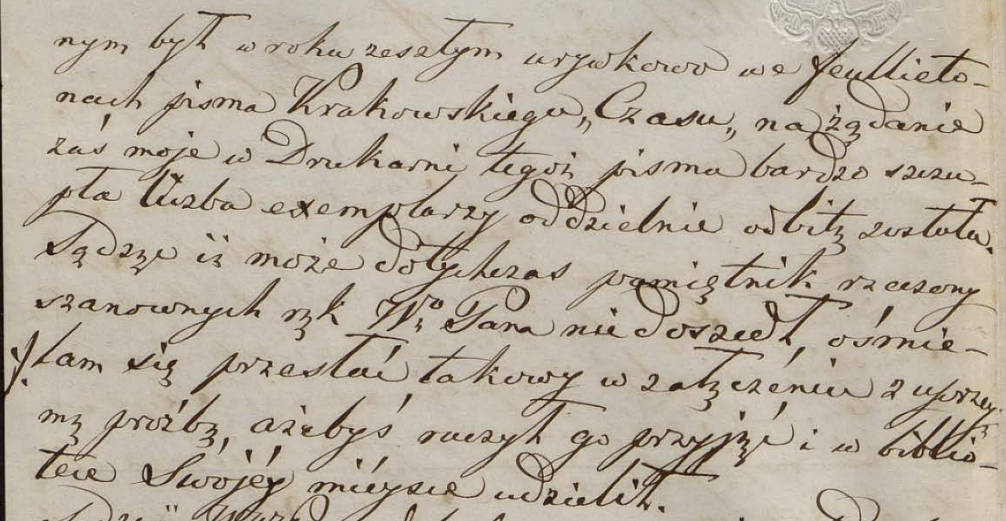 nym był w roku zeszłym urywkowo we feullieto-
nach pisma Krakowskiego „Czasu„ na żądanie
zaś moje w Drukarni tegoż pisma bardzo szczu-
pła liczba exemplarzy oddzielnie odbitą została.
Sądzę iż może dotychczas pamiętnik rzeczony
szanownych rąk Wo Pana nie doszedł, ośmie-
lam się przesłać takowy w załączeniu z uprzej
mą prośbą, ażebyś raczył go przyjąć i w biblio-
tece Swojéj miéysce udzielił.